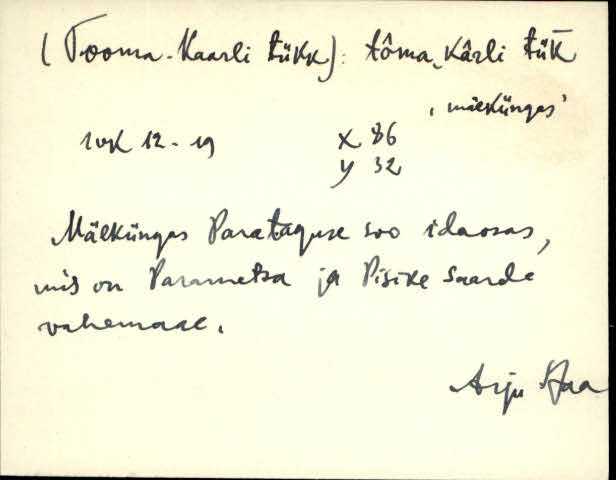 (Tooma-Kaarli tükk): tôma-kârli tük̄
'mäeküngas'
X 86
Y 32
Mäeküngas Parataguse soo idaosas,
mis on Parametsa ja Pisike Saarde
vahemaal.